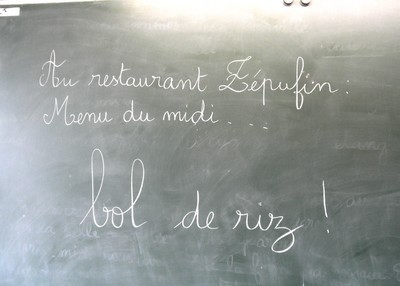 Au restaurant Zépufin :
Menu du midi...
bol de riz !